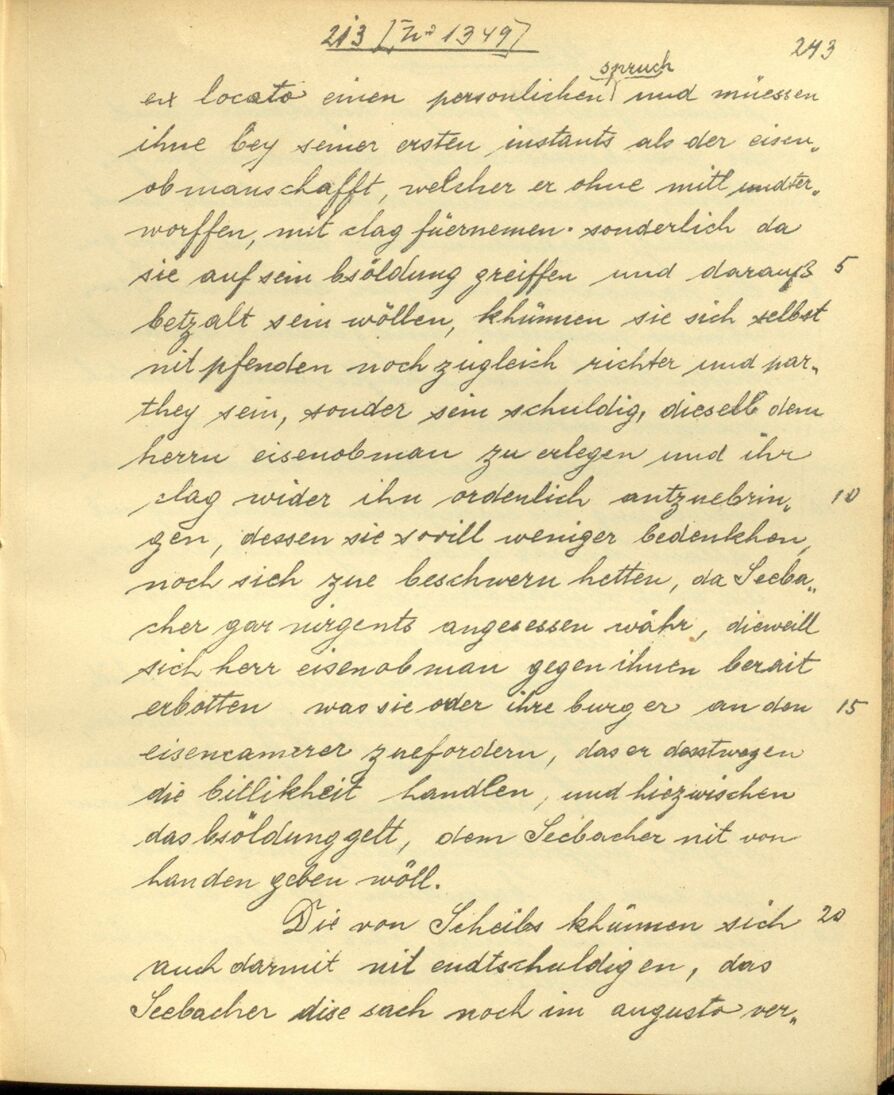 213 [No 1349]
243
spruch
ex locato einen personlichen und müessen
ihne bey seiner ersten instants als der eisen„
obmanschafft, welcher er ohne mitl undter„
worffen, mit clag füernemen. sonderlich da
sie auf sein bsöldung greiffen und darauß 5
betzalt sein wöllen, khünnen sie sich selbst
nit pfenden noch zugleich richter und par„
they sein, sonder sein schuldig, dieselb dem
herrn eisenobman zu erlegen und ihr
clag wider ihn ordenlich antzuebrin„ 10
gen, dessen sie sovill weniger bedenkhen,
noch sich zue beschwern hetten, da Seeba„
cher gar nirgents angesessen währ, dieweill
sich herr eisenobman gegen ihnen berait
erbotten was sie oder ihre burger an den 15
eisencamerer zuefordern, das er desstwegen
die billikheit handlen, und hiezwischen
das bsöldunggelt, dem Seebacher nit von
handen geben wöll.
Die von Scheibs khünnen sich 20
auch darmit nit endtschuldigen, das
Seebacher dise sach noch im augusto ver„